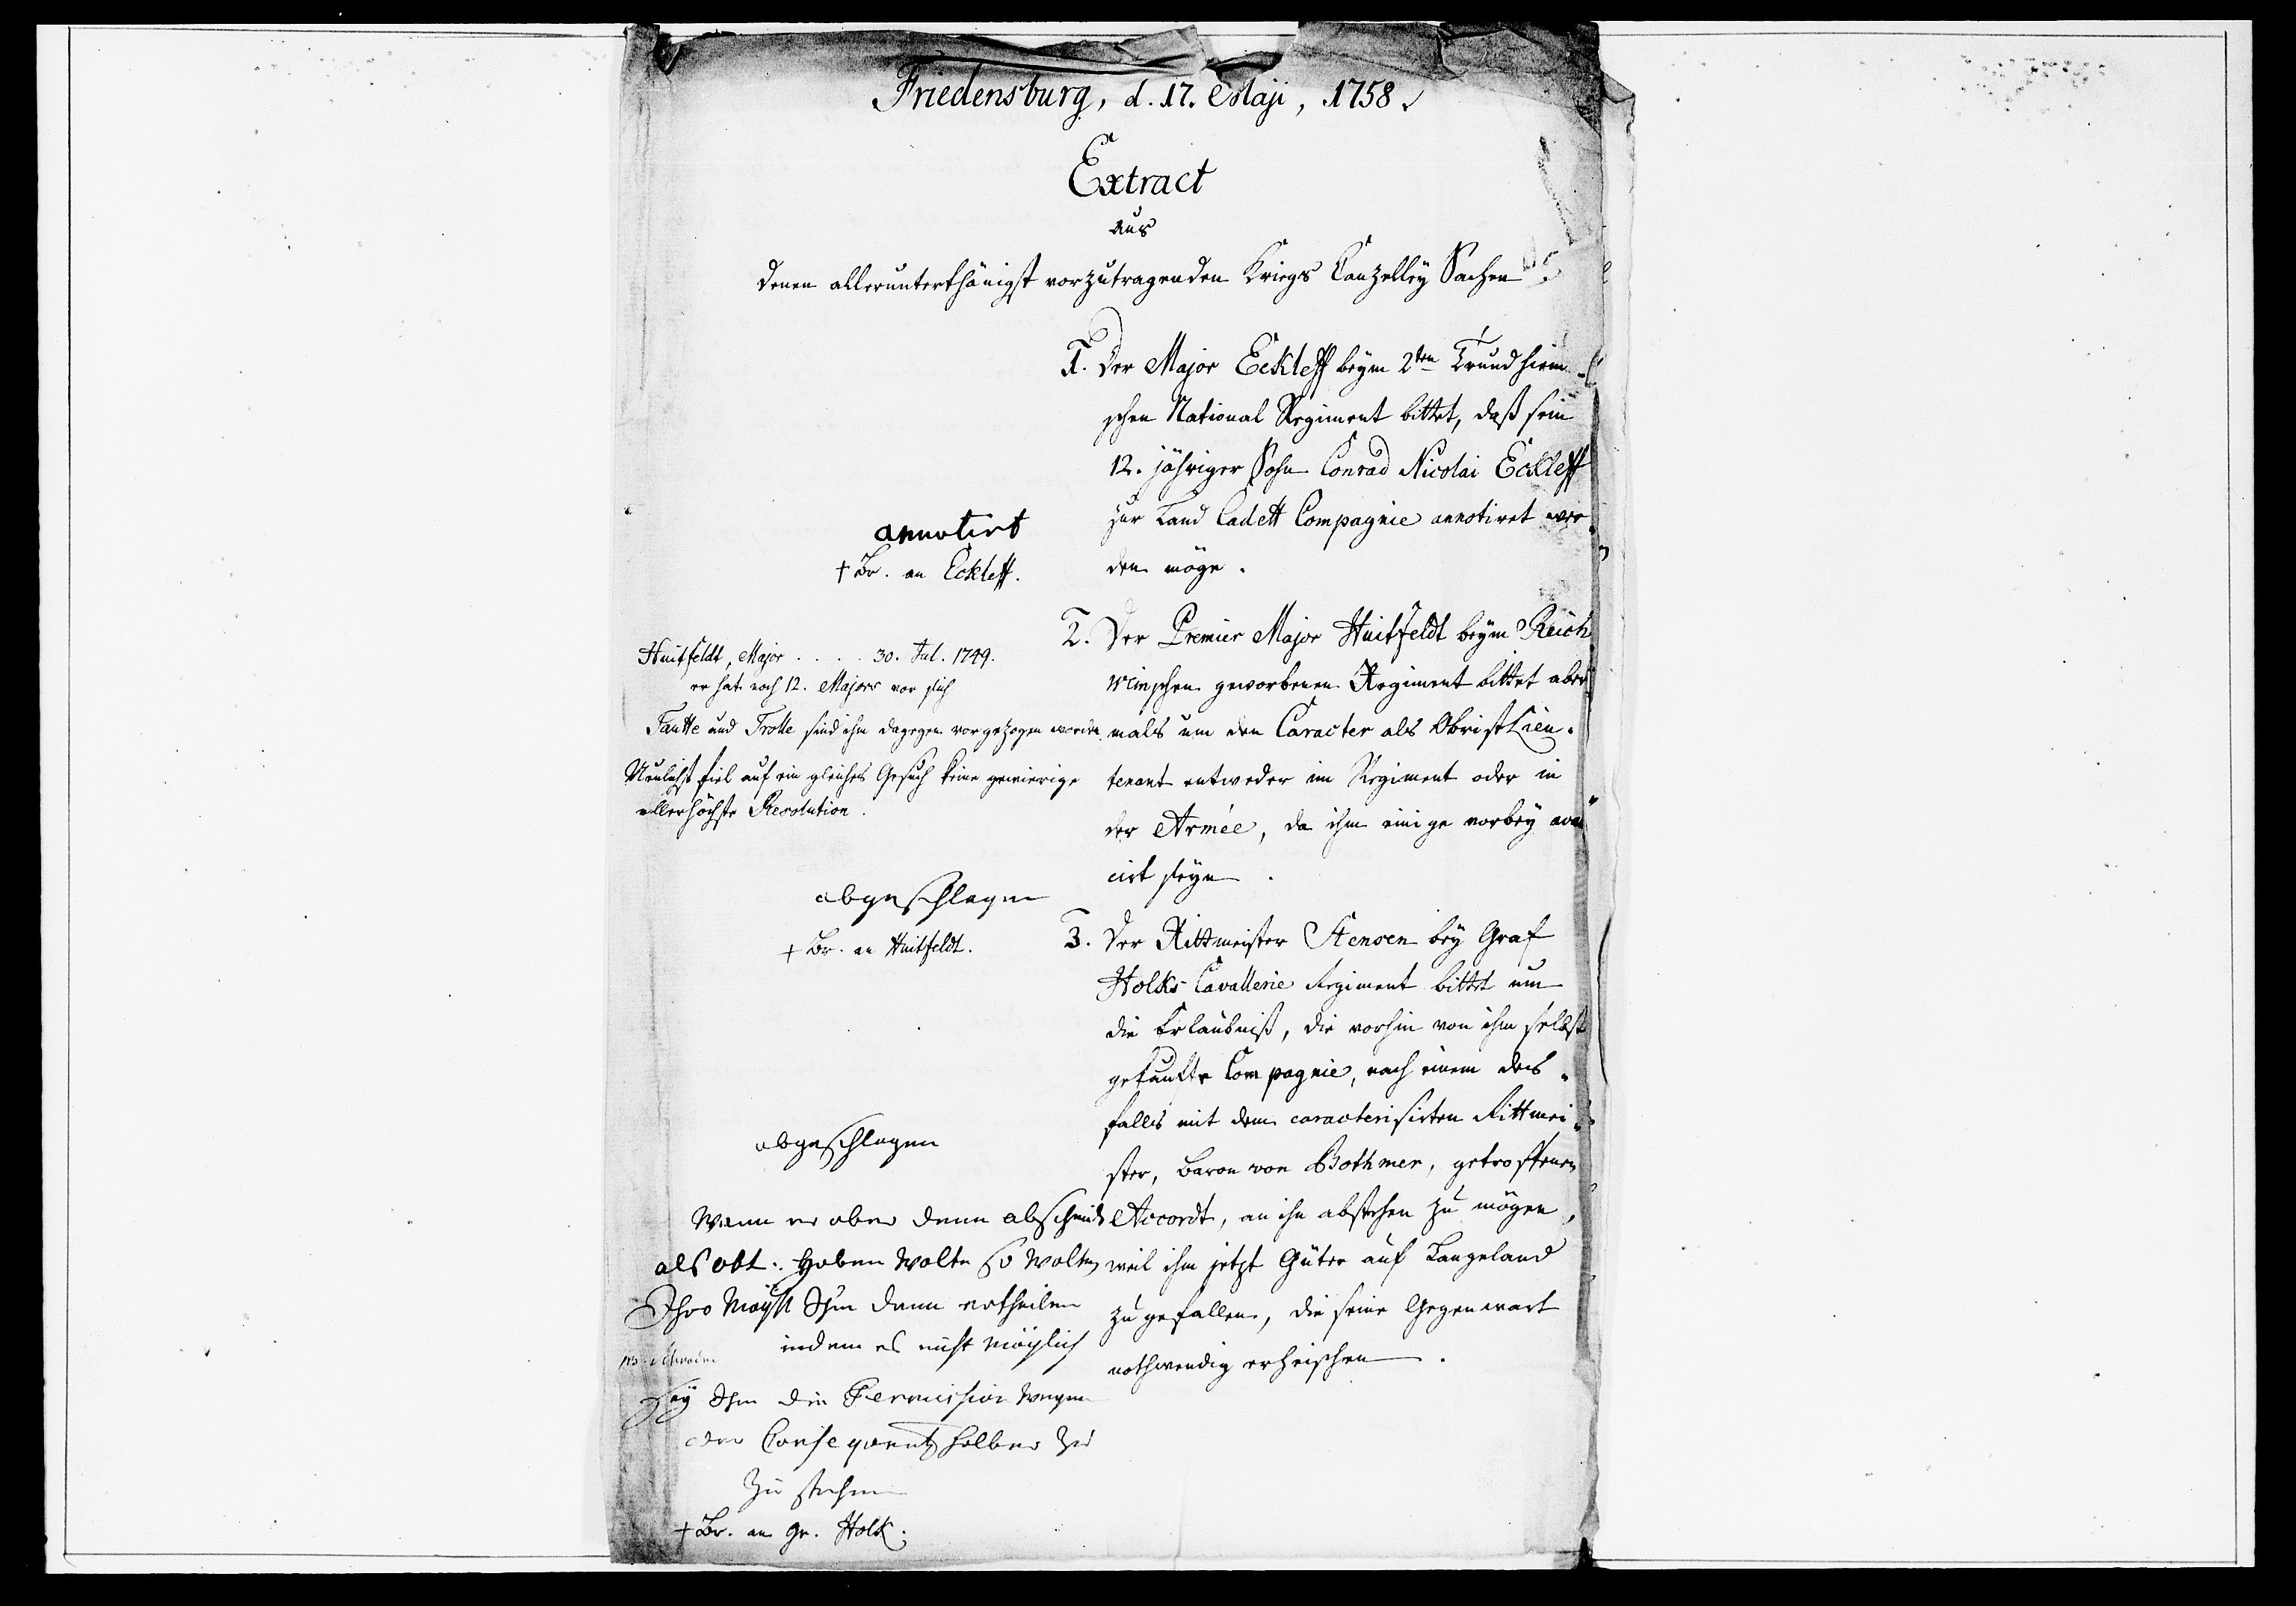 Friedensburg, d. 17. Maji, 1758.
Extract
aus
denen allerunterthänigst vorzutragenden Kriegs Canzelley Sachen
1. Der Major Eckleff beym 2ten Trundhiem-
schen National Regiment bittet, daß sein
12. jähriger Sohn Conrad Nicolai Eckleff
zur Land Cadett Compagnie annotiret wer-
den möge.
annotirt
† Br. an Eckleff.
2. Der Premier Major Huitfeldt beym Reich
weinschen geworbenen Regiment bittet aber
mals um den Caracter als Obrist Lieu-
tenant entweder im Regiment oder in
der Armée, da ihm einige vorbey avan
cirt seyn.
Huitfeldt, Major . . . . 30. Jul. 1749.
er hat noch 12. Majors vor sich
Tautte und Trolle sind ihm dagegen vorgezogen worden.
Neulichst fiel auf ein gleiches Gesuch keine gewierige
allerhöchste Resolution.
abgeschlagen
† Br. an Huitfeldt.
3. Der Rittmeister Stensen bey Graf
Holks Cavallerie Regiment bittet um
die Erlaubniß, die vorhin von ihm selbst
gekaufte Compagnie, nach einem des-
falls mit dem caracterisirten Rittmei-
ster, Baron von Bothmer, getroffenen
Accordt, an ihn abstehen zu mögen,
weil ihm jetzt Güter auf Langeland
zugefallen, die seine Gegenwart
nothwendig erheischen.
abgeschlagen
Wann er aber denn abscheidt
als obt: haben wolte so wolten
Ihro Mayst Ihm denn ertheilen
indem es nicht möglich
sey Ihm die Permission wegen
der Consequentz halber zu
zu stehen
† Br. an Gr. Holk.